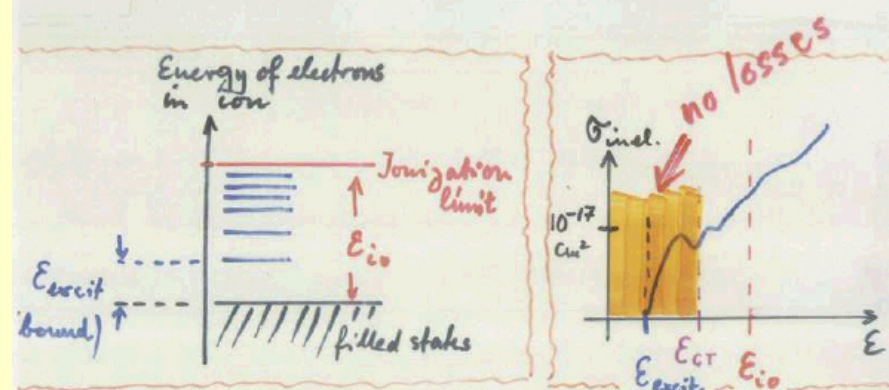 Energy of electrons
in ion
Ionization
limit
ε_io
ε_excit
(bound)
filled states
no losses
σ_inel.
10⁻¹⁷
cm²
ε_excit
ε_CT
ε_io
ε